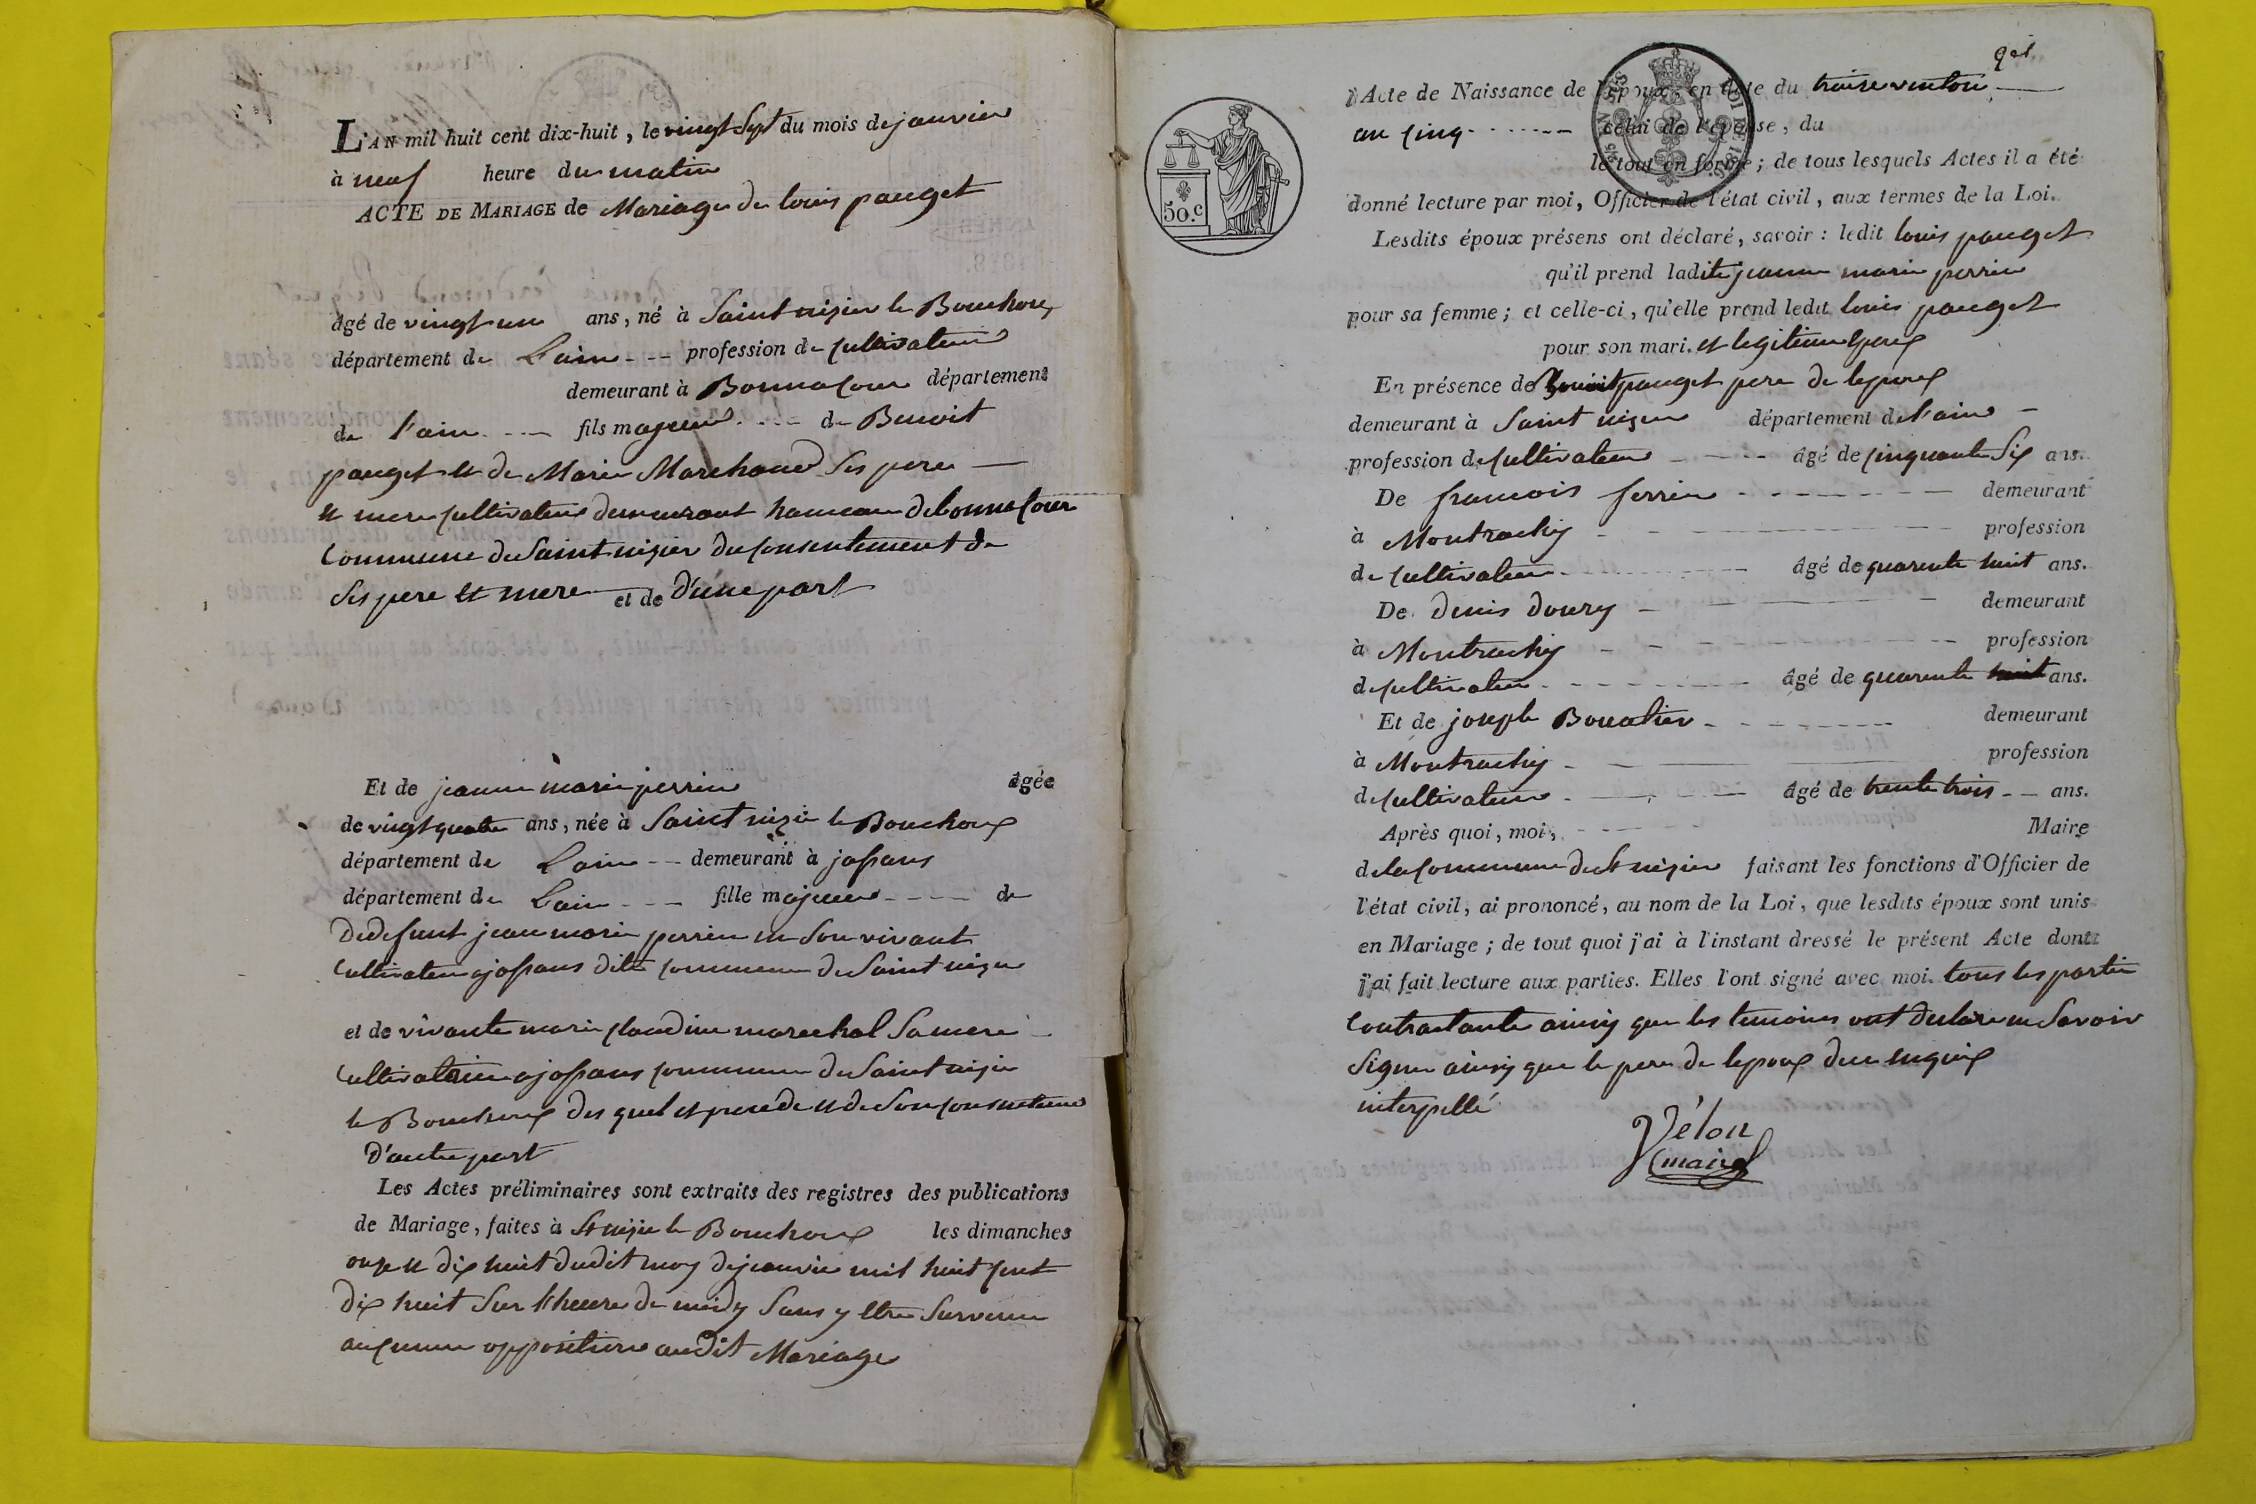 L'AN mil huit cent dix-huit, le vingt sept du mois de janvier
à neuf heure du matin
ACTE DE MARIAGE de Mariage de louis pauget
âgé de vingt un ans, né à Saint nizier le Bouchoux
département de L'ain profession de cultivateur
demeurant à Bonnacour département
de l'ain fils majeur de Benoit
pauget et de Marie Marchand ses pere
et mere cultivateurs demeurant hameau de bonnacour
commune de Saint nizier du consentement de
ses pere et mere et de d'une part
Et de jeanne marie perrin âgée
de vingt quatre ans, née à Saint nizier le Bouchoux
département de L'ain demeurant à jassans
département de L'ain fille majeure de
de defunt jean marie perrin en son vivant
cultivateur a jassans dite commune de Saint nizier
et de vivante marie claudine marechal sa mere
cultivatrice a jassans commune de Saint nizier
le Bouchoux des quel et procede et de son consentement
d'autre part
Les Actes préliminaires sont extraits des registres des publications
de Mariage, faites à St nizier le Bouchoux les dimanches
onze et dix huit dudit moy de janvier mil huit cent
dix huit sur l'heure de midy sans y etre survenu
aucunne opposition audit Mariage
50.c
Acte de Naissance de l'époux en date du treize ventose
an cinq celui de l'épouse, du
le tout en forme; de tous lesquels Actes il a été
donné lecture par moi, Officier de l'état civil, aux termes de la Loi.
Lesdits époux présens ont déclaré, savoir : ledit louis pauget
qu'il prend ladite jeanne marie perrin
pour sa femme; et celle-ci, qu'elle prend ledit louis pauget
pour son mari. et legitime epoux
En présence de Benoit pauget pere de lepoux
demeurant à Saint nizier département de l'ain
profession de cultivateur âgé de cinquante six ans.
De francois perrin demeurant
à Montrachy profession
de cultivateur âgé de quarente huit ans.
De denis doury demeurant
à Montrachy profession
de cultivateur âgé de quarente huit ans.
Et de joseph Bouvatier demeurant
à Montrachy profession
de cultivateur âgé de trente trois ans.
Après quoi, moi, Maire
de la commune de St nizier faisant les fonctions d'Officier de
l'état civil, ai prononcé, au nom de la Loi, que lesdits époux sont unis
en Mariage; de tout quoi j'ai à l'instant dressé le présent Acte dont
j'ai fait lecture aux parties. Elles l'ont signé avec moi. tous les partie
contractante ainsy que les temoins ont declare ne savoir
signer ainsy que le pere de lepoux de ce enquis
interpellé
Vélon
maire